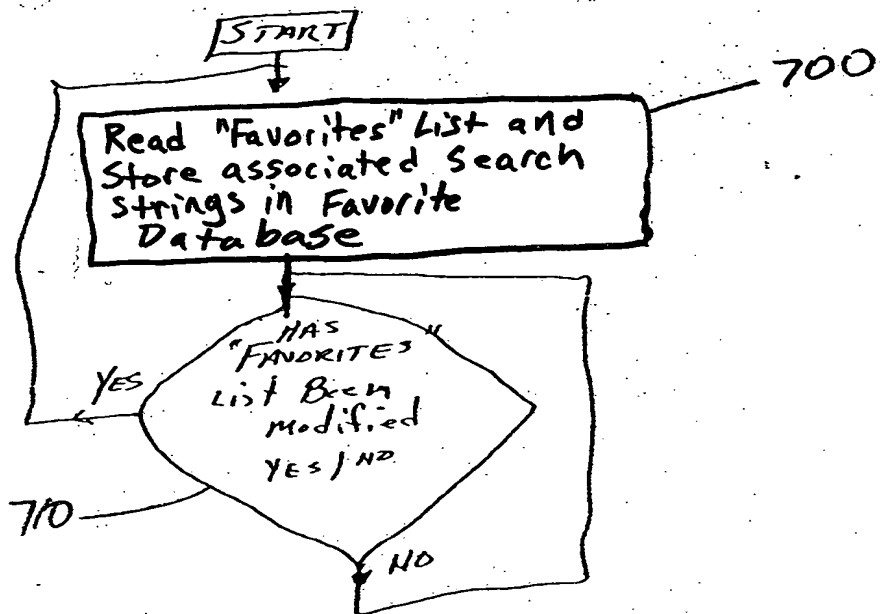 START
700
Read "Favorites" List and
Store associated Search
strings in Favorite
Database
HAS
"FAVORITES"
List Been
modified
YES / NO
YES
710
NO